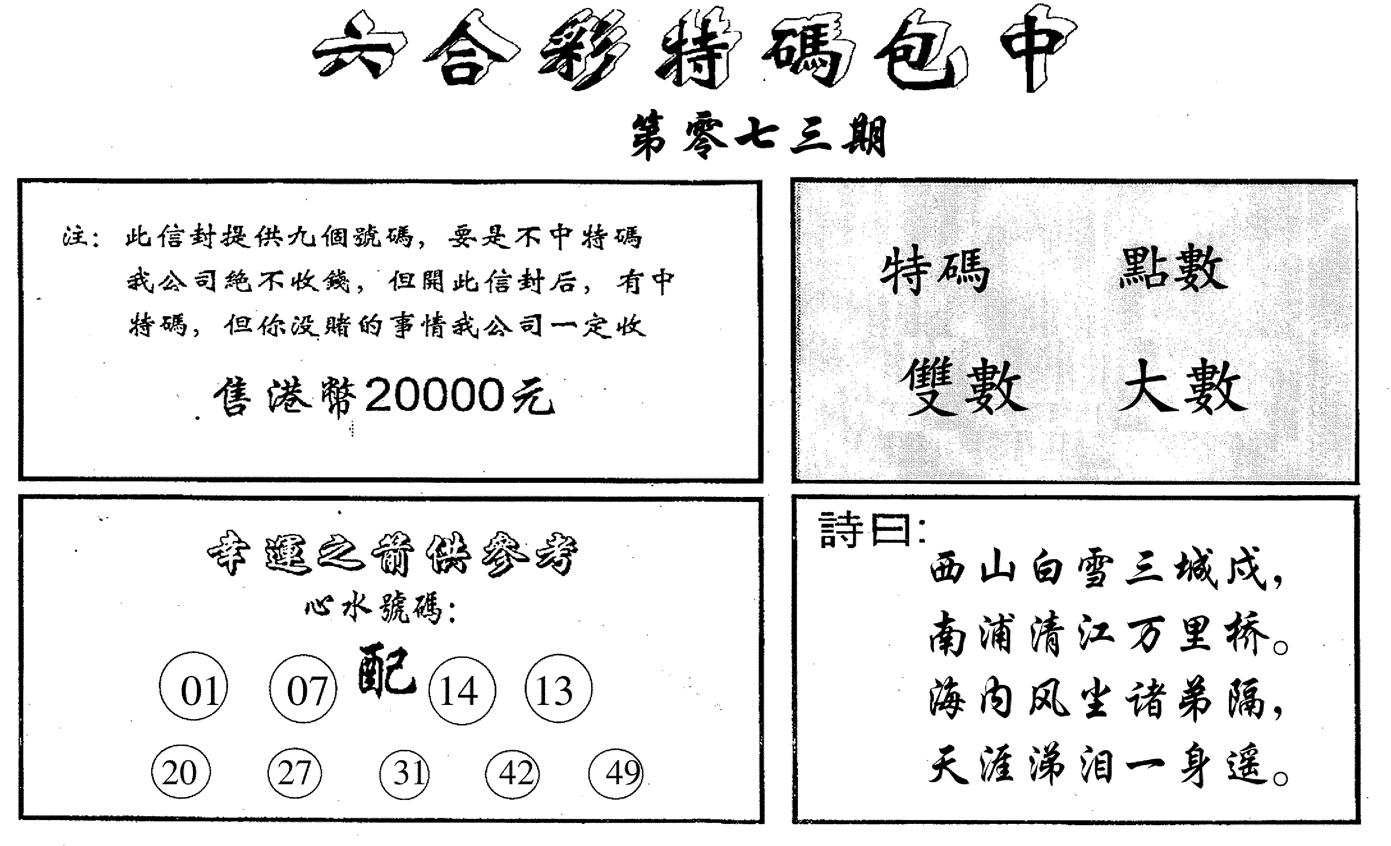 六合彩特碼包中
第零七三期
注：此信封提供九個號碼，要是不中特碼
我公司絶不收錢，但開此信封后，有中
特碼，但你没賭的事情我公司一定收
售港幣20000元
特碼 點數
雙數 大數
幸運之箭供參考
心水號碼：
01 07 配 14 13
20 27 31 42 49
詩曰：
西山白雪三城戍，
南浦清江万里桥。
海内风尘诸弟隔，
天涯涕泪一身遥。